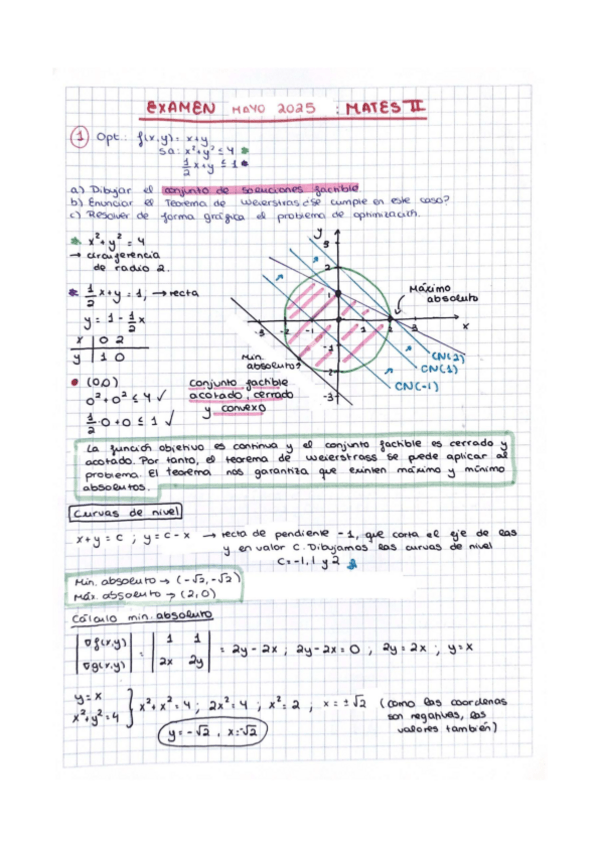 EXAMEN MAYO 2025 : MATES II
① Opt.: f(x,y) = x+y
sa: x²+y² ≤ 4 *
1/2 x+y ≤ 1 *
a) Dibujar el conjunto de soluciones factible
b) Enunciar el Teorema de Weierstrass ¿Se cumple en este caso?
c) Resolver de forma gráfica el problema de optimización.
* x²+y² = 4
→ circunferencia
de radio 2.
* 1/2 x+y = 1, → recta
y = 1 - 1/2 x
x | 0 2
y | 1 0
• (0,0)
0²+0² ≤ 4 ✓
1/2·0+0 ≤ 1 ✓
y
3
2
1
-3 -2 -1 1 2 3 x
-1
-2
-3
Máximo
absoluto
Min.
absoluto?
CN(2)
CN(1)
CN(-1)
Conjunto factible
acotado, cerrado
y convexo
La función objetivo es continua y el conjunto factible es cerrado y
acotado. Por tanto, el teorema de Weierstrass se puede aplicar al
problema. El teorema nos garantiza que existen máximo y mínimo
absolutos.
Curvas de nivel
x+y = C ; y = C-x → recta de pendiente -1, que corta el eje de las
y en valor C. Dibujamos las curvas de nivel
C=-1, 1 y 2
Min. absoluto → (-√2,-√2)
Máx. absoluto → (2,0)
Cálculo min. absoluto
|∇f(x,y)| = |1 1| = 2y-2x ; 2y-2x=0 , 2y=2x ; y=x
|∇g(x,y)| |2x 2y|
y=x
x²+y²=4 } x²+x²=4 ; 2x²=4 , x²=2 , x=±√2 (como las coordenas
son negativas, los
valores también)
y=-√2 , x=-√2